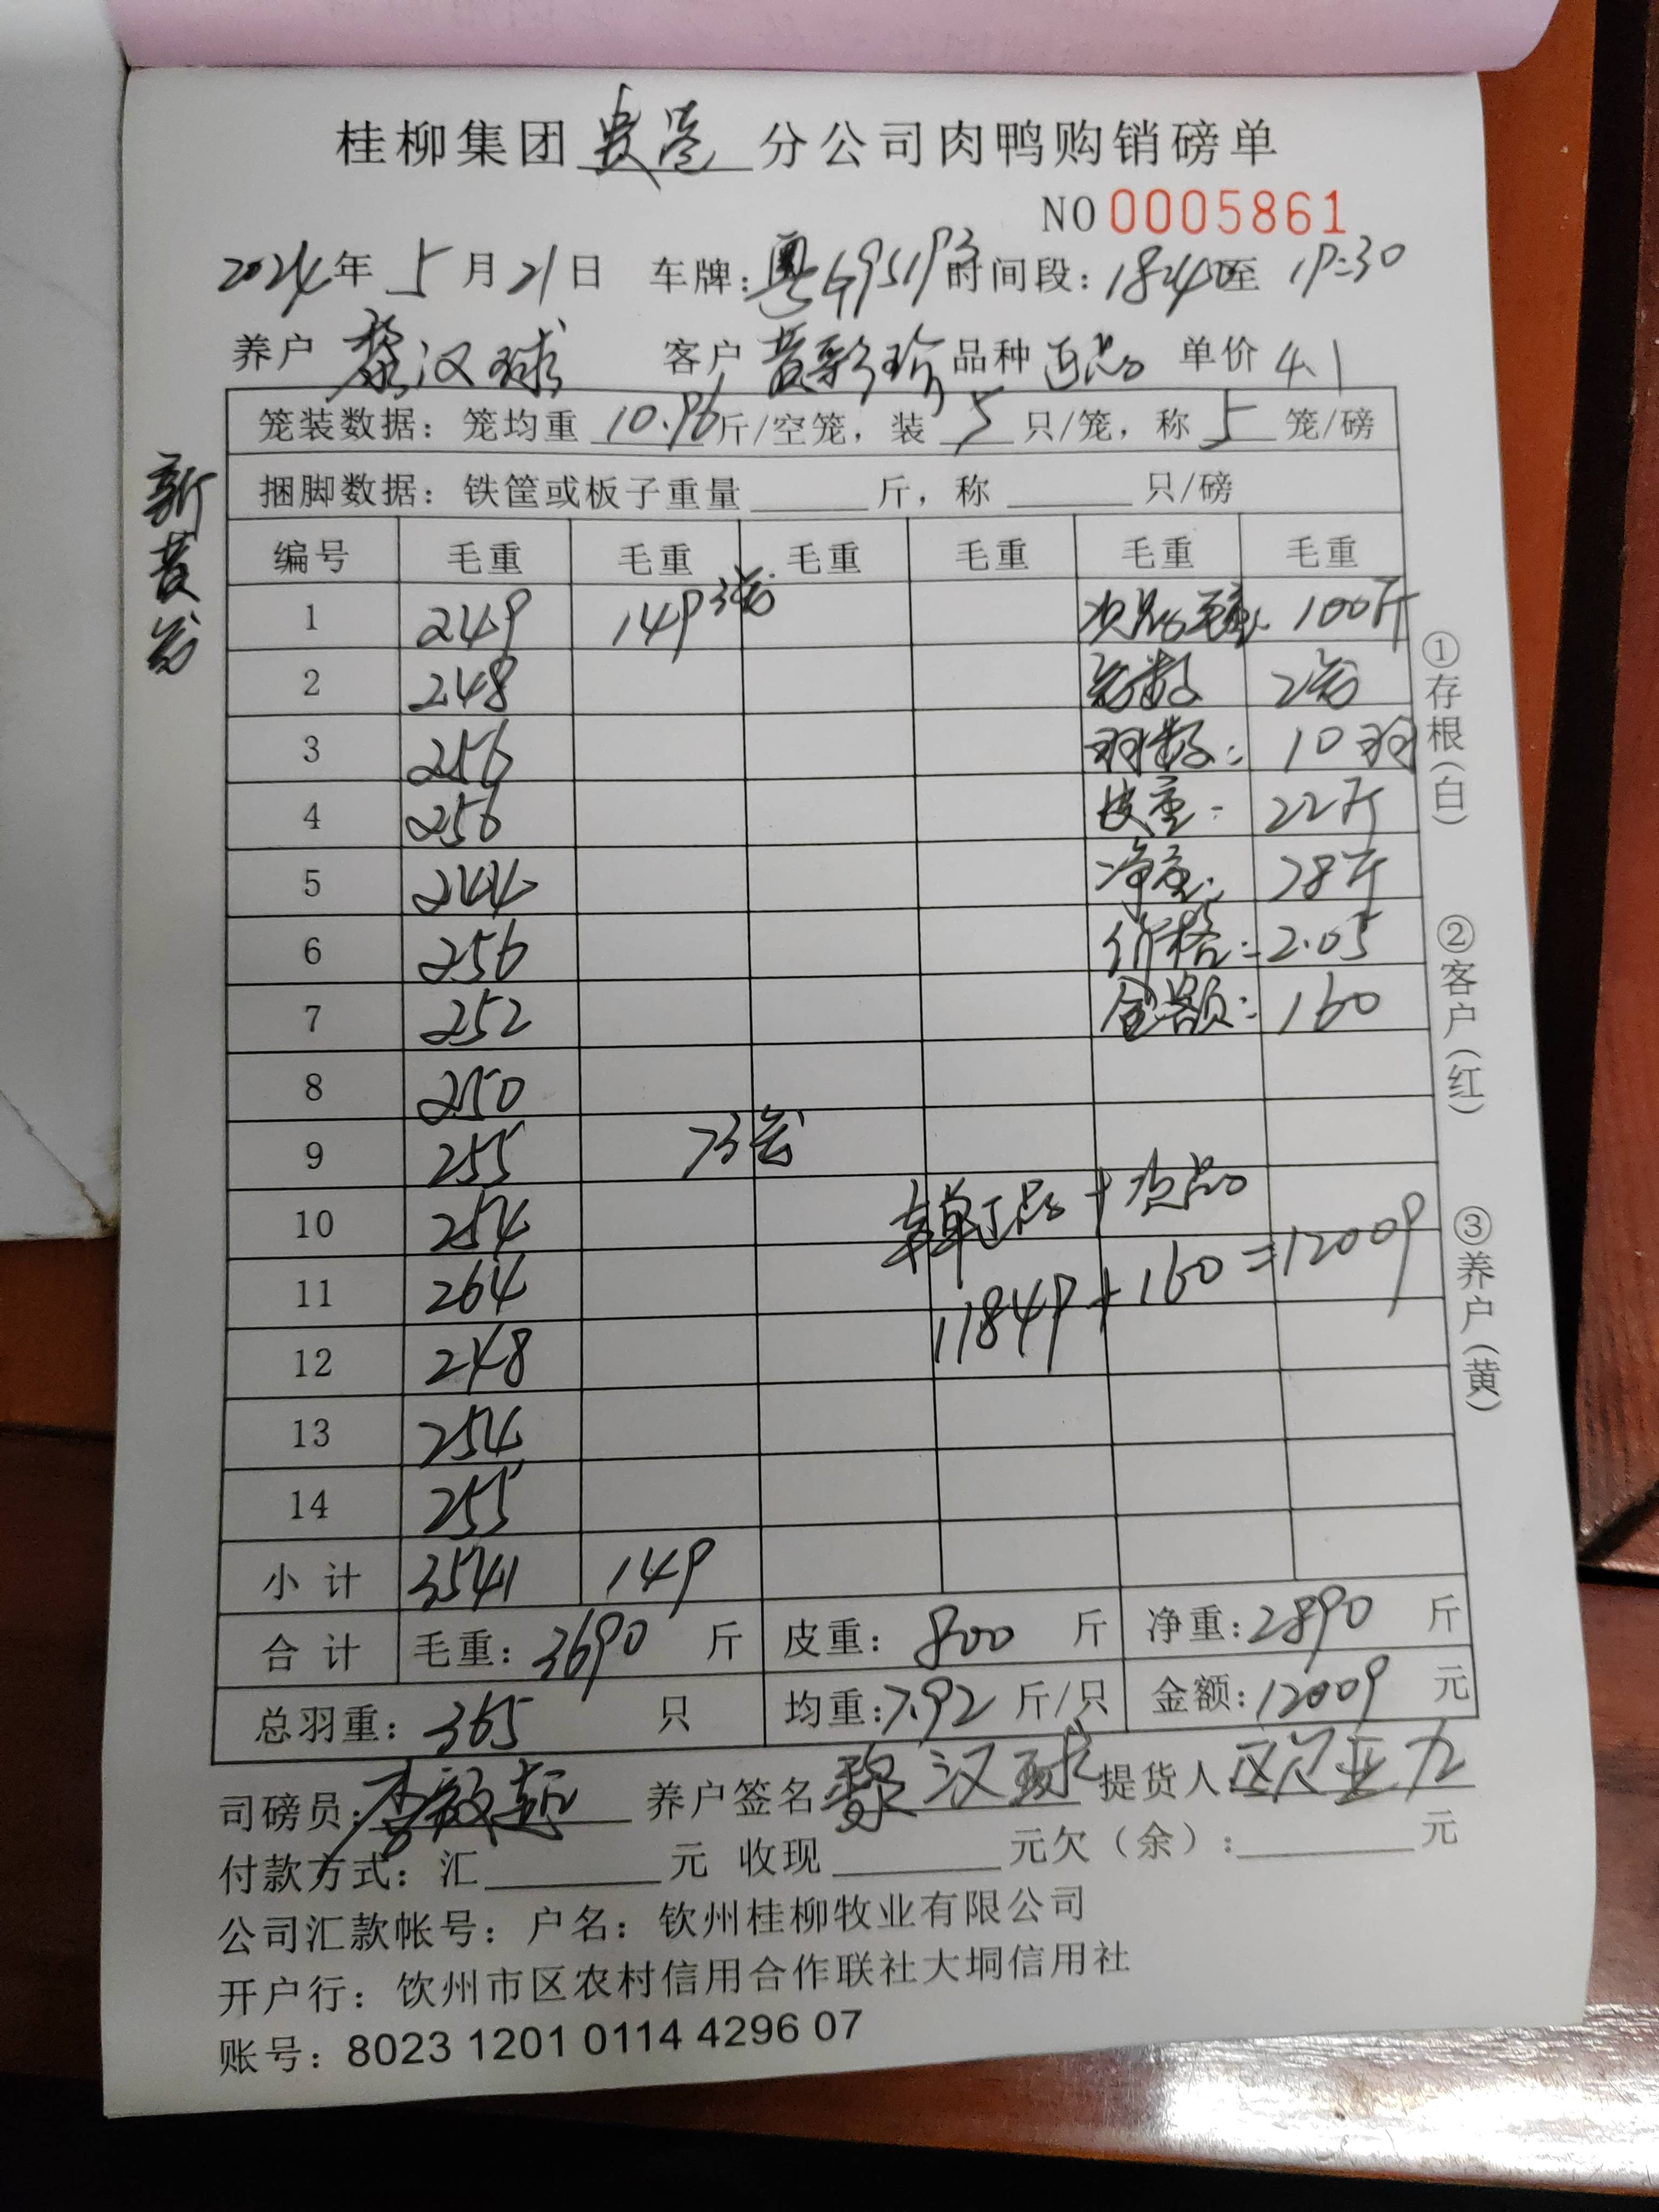 桂柳集团 贵港 分公司肉鸭购销磅单
NO 0005861
2024年 5月21日 车牌：粤G95193 时间段：1840至 19:30
养户 黎汉球 客户 黄彩珍 品种 正品 单价 4.1
笼装数据：笼均重 10.96斤/空笼，装 5 只/笼，称 5 笼/磅
捆脚数据：铁筐或板子重量 斤，称 只/磅
新黄笼
编号 毛重 毛重 毛重 毛重 毛重 毛重
1 249 149 3笼 次品毛重： 100斤
2 248 笼数 2笼
3 256 羽数： 10羽
4 256 皮重： 22斤
5 244 净重： 78斤
6 256 价格： 2.05
7 252 金额： 160
8 250
9 255 73笼
10 254 正品+次品
11 264 11849+160=12009
12 248
13 254
14 255
小计 3541 149
合计 毛重：3690 斤 皮重：800 斤 净重：2890 斤
总羽重：365 只 均重：7.92 斤/只 金额：12009 元
司磅员： 养户签名 黎汉球 提货人 欧亚九
付款方式：汇 元 收现 元欠（余）： 元
公司汇款帐号：户名：钦州桂柳牧业有限公司
开户行：钦州市区农村信用合作联社大垌信用社
账号：8023 1201 0114 4296 07
①存根（白）
②客户（红）
③养户（黄）